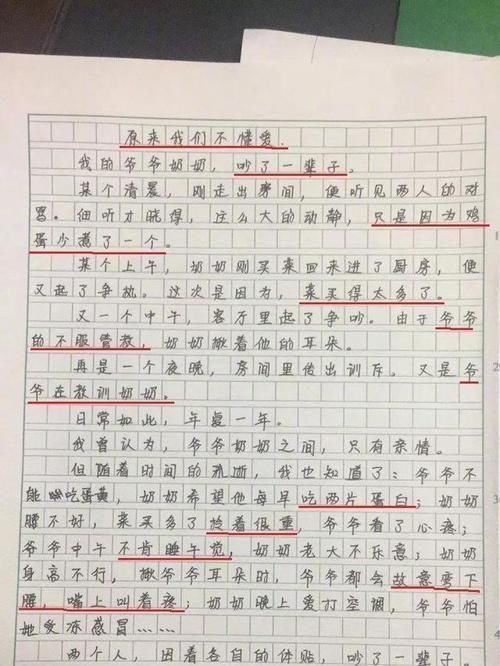 原来我们不懂爱.
我的爷爷奶奶，吵了一辈子。
某个清晨，刚走出房间，便听见两人的对
骂。细听才晓得，这么大的动静，只是因为鸡
蛋少煮了一个。
某个上午，奶奶刚买菜回来进了厨房，便
又起了争执。这次是因为，菜买得太多了。
又一个中午，客厅里起了争吵。由于爷爷
的不服管教，奶奶揪着他的耳朵。
再是一个夜晚，房间里传出训斥。又是爷
爷在教训奶奶。
日常如此，年复一年。
我曾认为，爷爷奶奶之间，只有亲情。
但随着时间的流逝，我也知道了：爷爷不
能吃蛋黄，奶奶希望他每早吃两片蛋白；奶奶
腰不好，菜买多了拎着很重，爷爷看了心疼；
爷爷中午不肯睡午觉，奶奶老大不乐意；奶奶
身高不行，揪爷爷耳朵时，爷爷都会故意弯下
腰，嘴上叫着疼；奶奶晚上爱打空调，爷爷怕
她受冻感冒……
两个人，因着各自的体贴，吵了一辈子
1
20
3
4